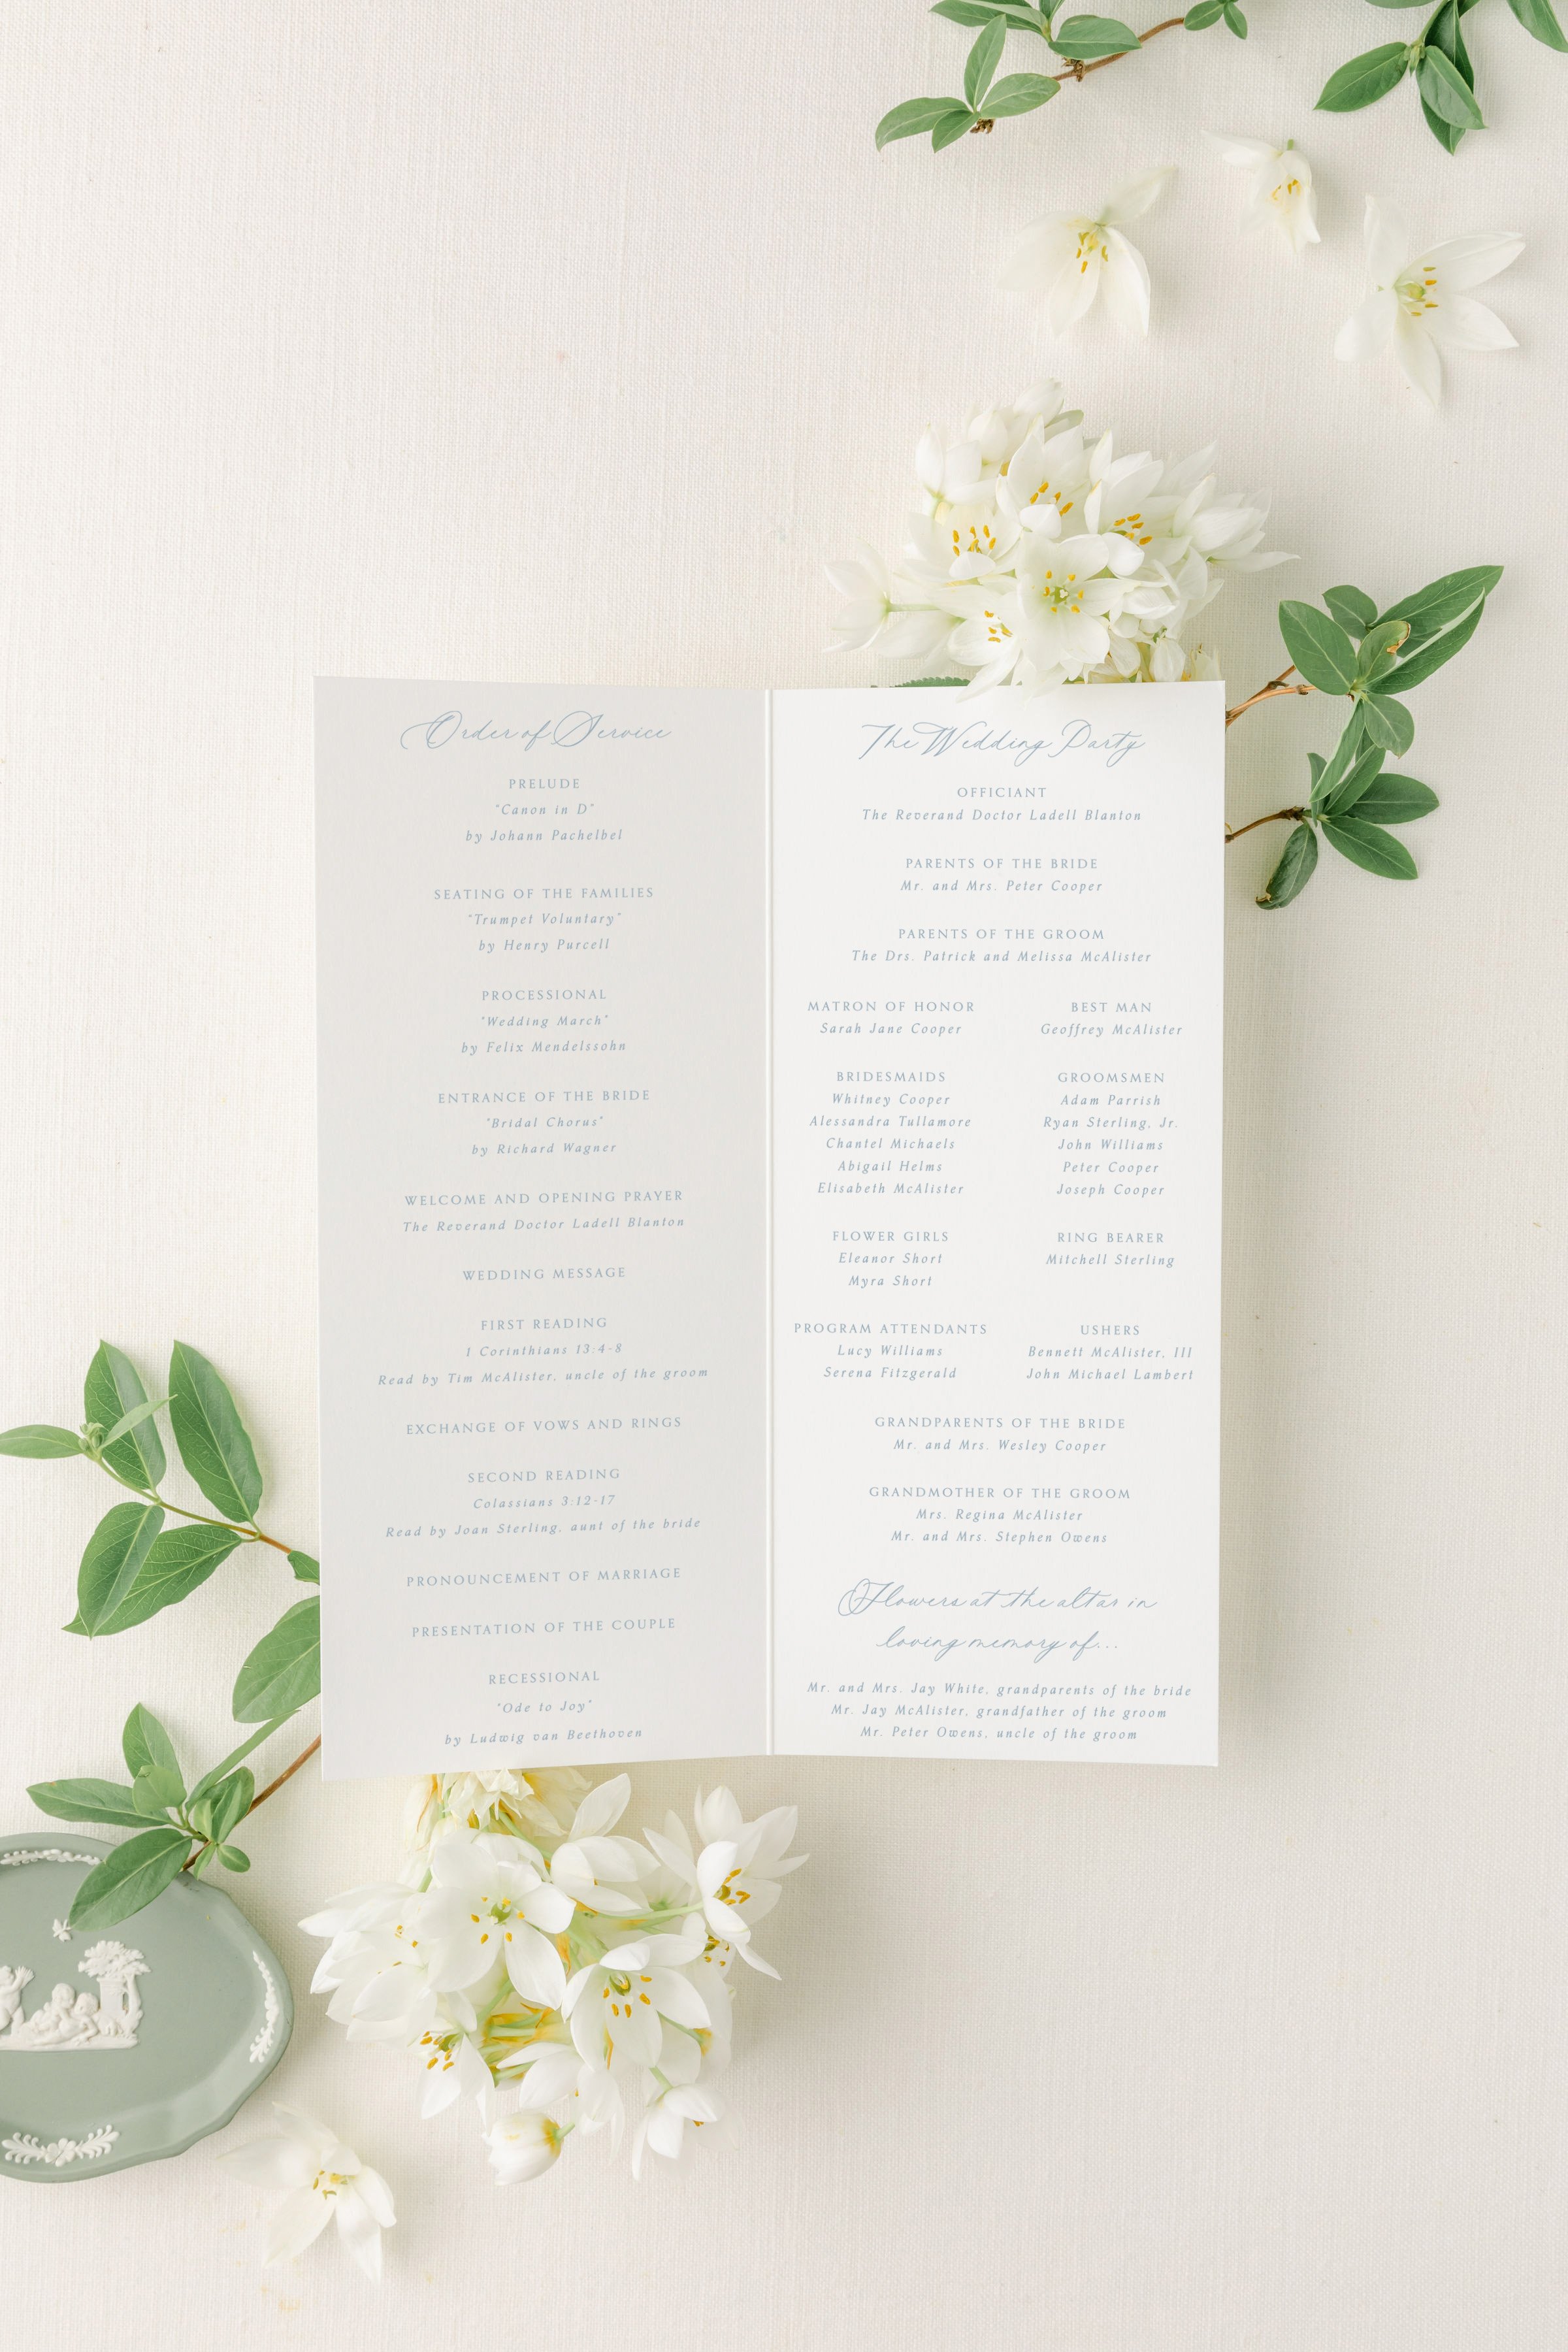 Order of Service
PRELUDE
"Canon in D"
by Johann Pachelbel
SEATING OF THE FAMILIES
"Trumpet Voluntary"
by Henry Purcell
PROCESSIONAL
"Wedding March"
by Felix Mendelssohn
ENTRANCE OF THE BRIDE
"Bridal Chorus"
by Richard Wagner
WELCOME AND OPENING PRAYER
The Reverand Doctor Ladell Blanton
WEDDING MESSAGE
FIRST READING
1 Corinthians 13:4-8
Read by Tim McAlister, uncle of the groom
EXCHANGE OF VOWS AND RINGS
SECOND READING
Colassians 3:12-17
Read by Joan Sterling, aunt of the bride
PRONOUNCEMENT OF MARRIAGE
PRESENTATION OF THE COUPLE
RECESSIONAL
"Ode to Joy"
by Ludwig van Beethoven
The Wedding Party
OFFICIANT
The Reverand Doctor Ladell Blanton
PARENTS OF THE BRIDE
Mr. and Mrs. Peter Cooper
PARENTS OF THE GROOM
The Drs. Patrick and Melissa McAlister
MATRON OF HONOR
Sarah Jane Cooper
BEST MAN
Geoffrey McAlister
BRIDESMAIDS
Whitney Cooper
Alessandra Tullamore
Chantel Michaels
Abigail Helms
Elisabeth McAlister
GROOMSMEN
Adam Parrish
Ryan Sterling, Jr.
John Williams
Peter Cooper
Joseph Cooper
FLOWER GIRLS
Eleanor Short
Myra Short
RING BEARER
Mitchell Sterling
PROGRAM ATTENDANTS
Lucy Williams
Serena Fitzgerald
USHERS
Bennett McAlister, III
John Michael Lambert
GRANDPARENTS OF THE BRIDE
Mr. and Mrs. Wesley Cooper
GRANDMOTHER OF THE GROOM
Mrs. Regina McAlister
Mr. and Mrs. Stephen Owens
Flowers at the altar in
loving memory of...
Mr. and Mrs. Jay White, grandparents of the bride
Mr. Jay McAlister, grandfather of the groom
Mr. Peter Owens, uncle of the groom